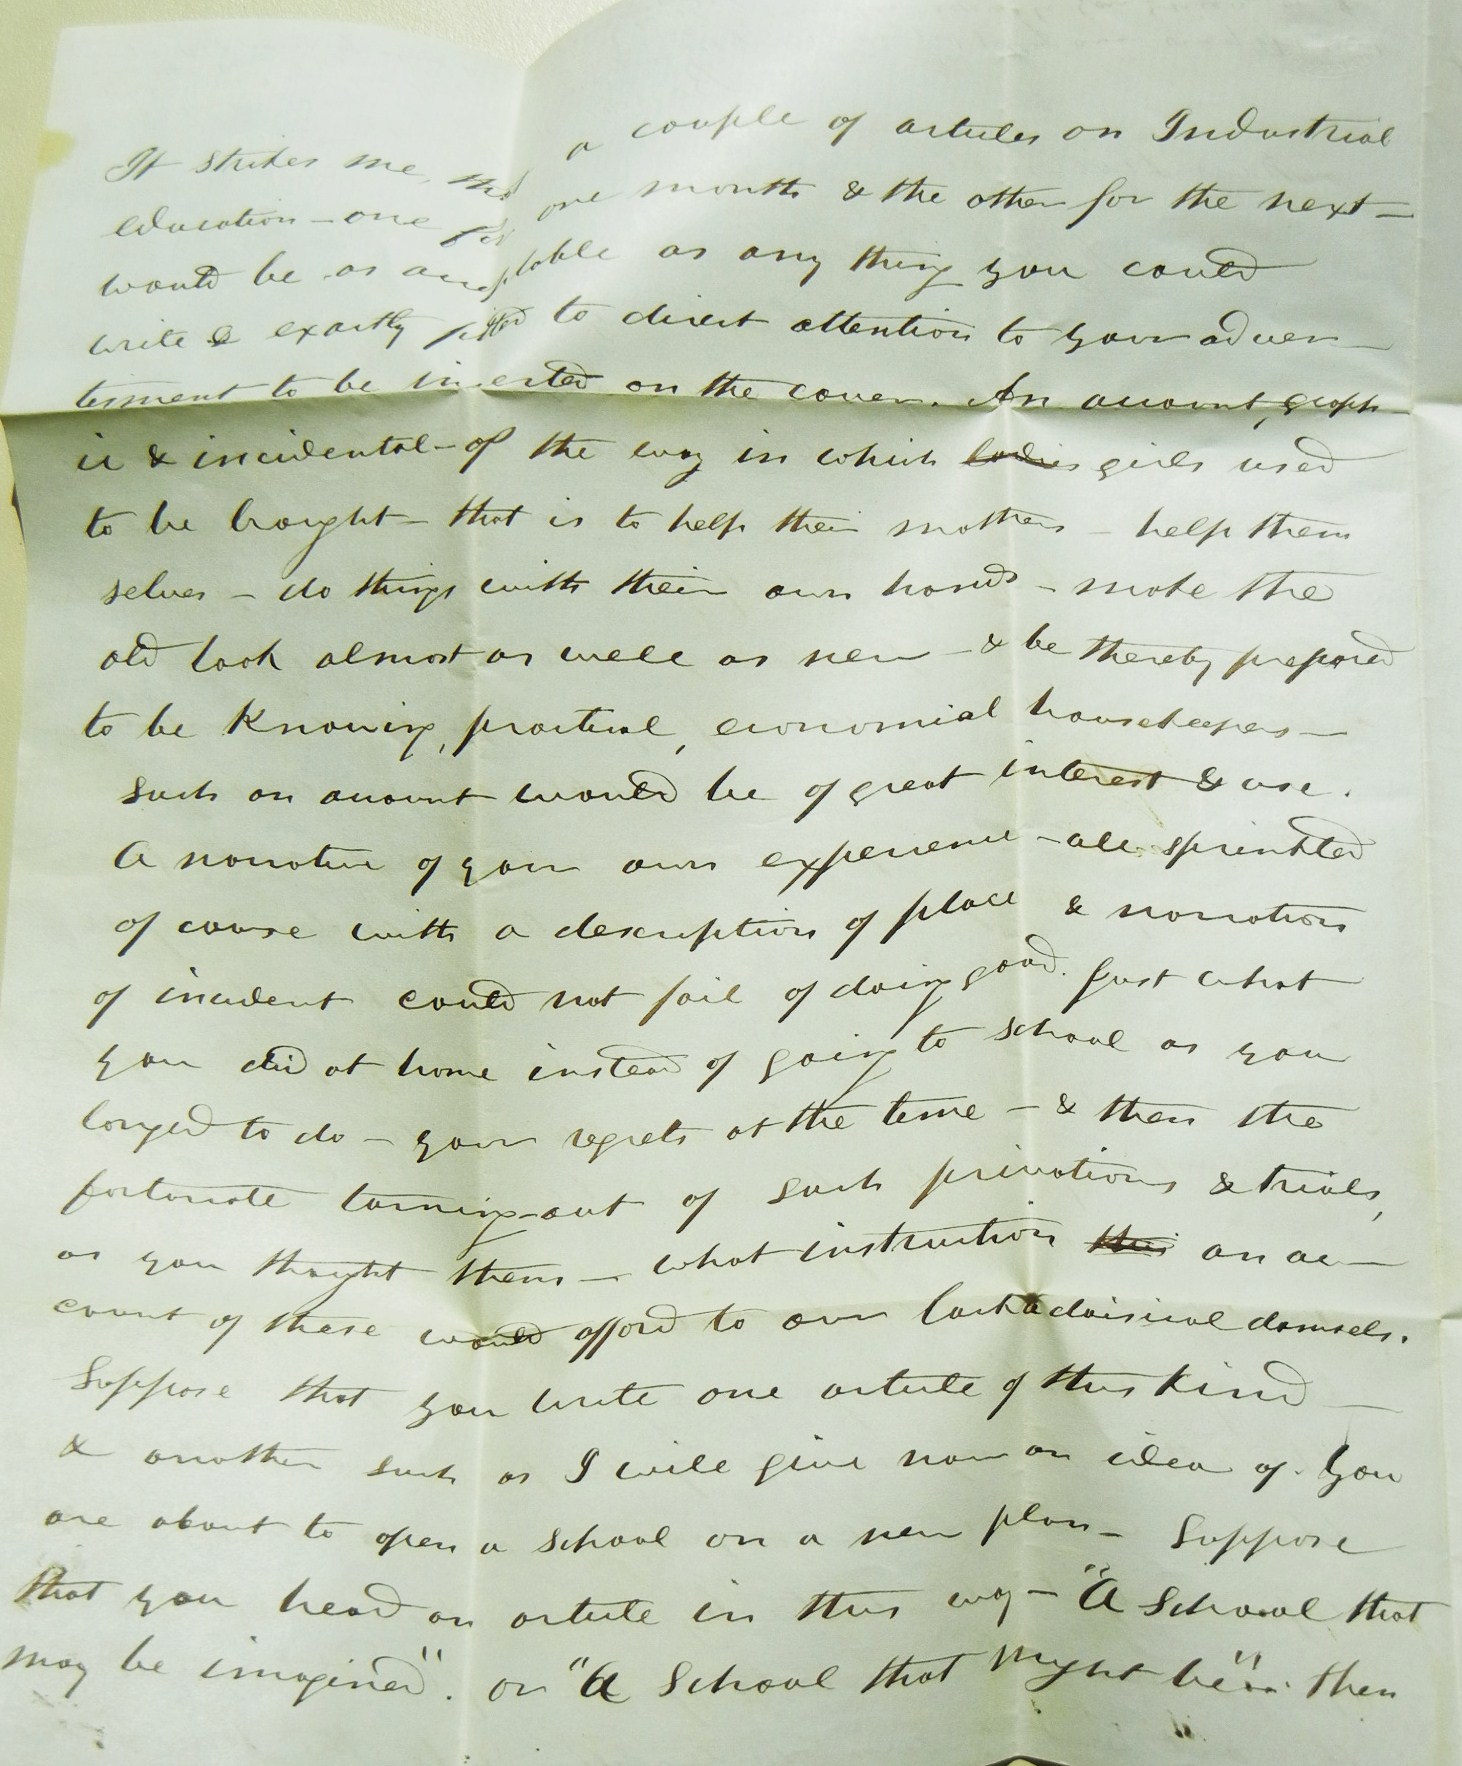 It strikes me, that a couple of articles on Industrial
education – one for one month & the other for the next –
would be as acceptable as any thing you could
write & exactly fitted to direct attention to your adver–
tisement to be inserted on the cover. An account, graph–
ic & incidental – of the way in which ladies girls used
to be brought – that is to help their mothers – help them
selves – do things with their own hands – make the
old look almost as well as new – & be thereby prepared
to be knowing, practical, economical housekeepers –
Such an account would be of great interest & use.
A narrative of your own experience – all sprinkled
of course with a description of place & narration
of incident could not fail of doing good. Just what
you did at home instead of going to school as you
longed to do – your regrets at the time – & then the
fortunate turning-out of such privations & trials,
as you thought them – what instruction this an ac–
count of these would afford to our lackadaisical damsels.
Suppose that you write one article of this kind –
& another such as I will give now an idea of. You
are about to open a school on a new plan – Suppose
that you head an article in this way – "A School that
may be imagined". or "A School that might be". then